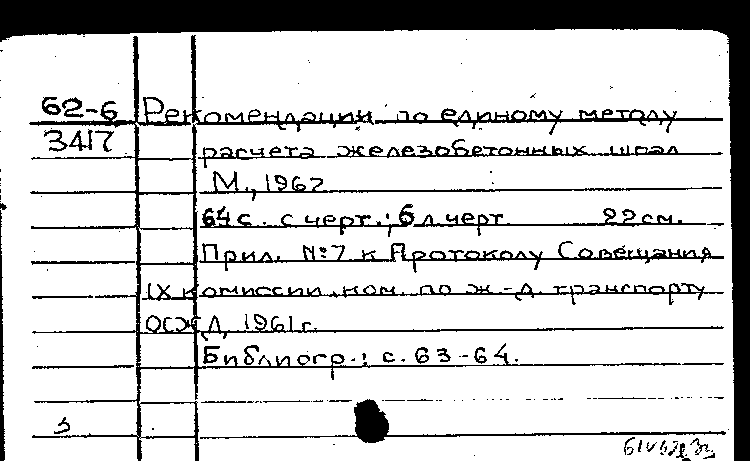 62-6 Рекомендации по единому методу
3417 расчета железобетонных шпал
М., 1962
64 с. с черт.; 6 л. черт. 22 см.
Прил. №7 к Протоколу Совещания
IX комиссии ком. по ж.-д. транспорту
ОСЖД, 1961 г.
Библиогр.: с. 63-64.
3